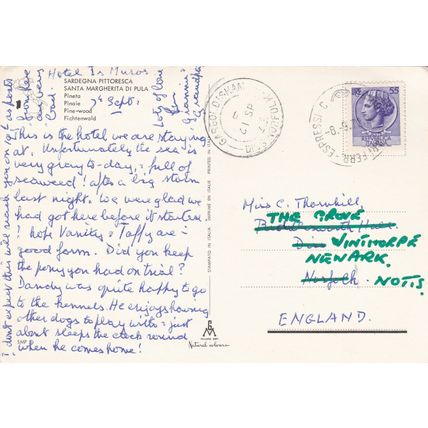 SARDEGNA PITTORESCA
SANTA MARGHERITA DI PULA
Pineta
Pinaie
Pine-wood
Fichtenwald
Hotel Is Muros
7th Sept.
This is the hotel we are staying
at. Unfortunately the sea is
very grey to-day, & full of
seaweed! after a big storm
last night. We were glad we
had got here before it started
I hope Vanity & Taffy are in
good form. Did you keep
the pony you had on trial?
Dandy was quite happy to go
to the kennels. He enjoys having
other dogs to play with & just
about sleeps the clock round
when he comes home!
I don't expect this will reach you
lots of love
from
Grannie &
Grandpa
STAMPATO IN ITALIA
PRINTED IN ITALY
SMP
Natural colours
55
FERR. ESPRESSI
Miss C. Thornhill
THE GROVE
WINTHORPE
NEWARK.
Norfolk
NOTTS.
ENGLAND.